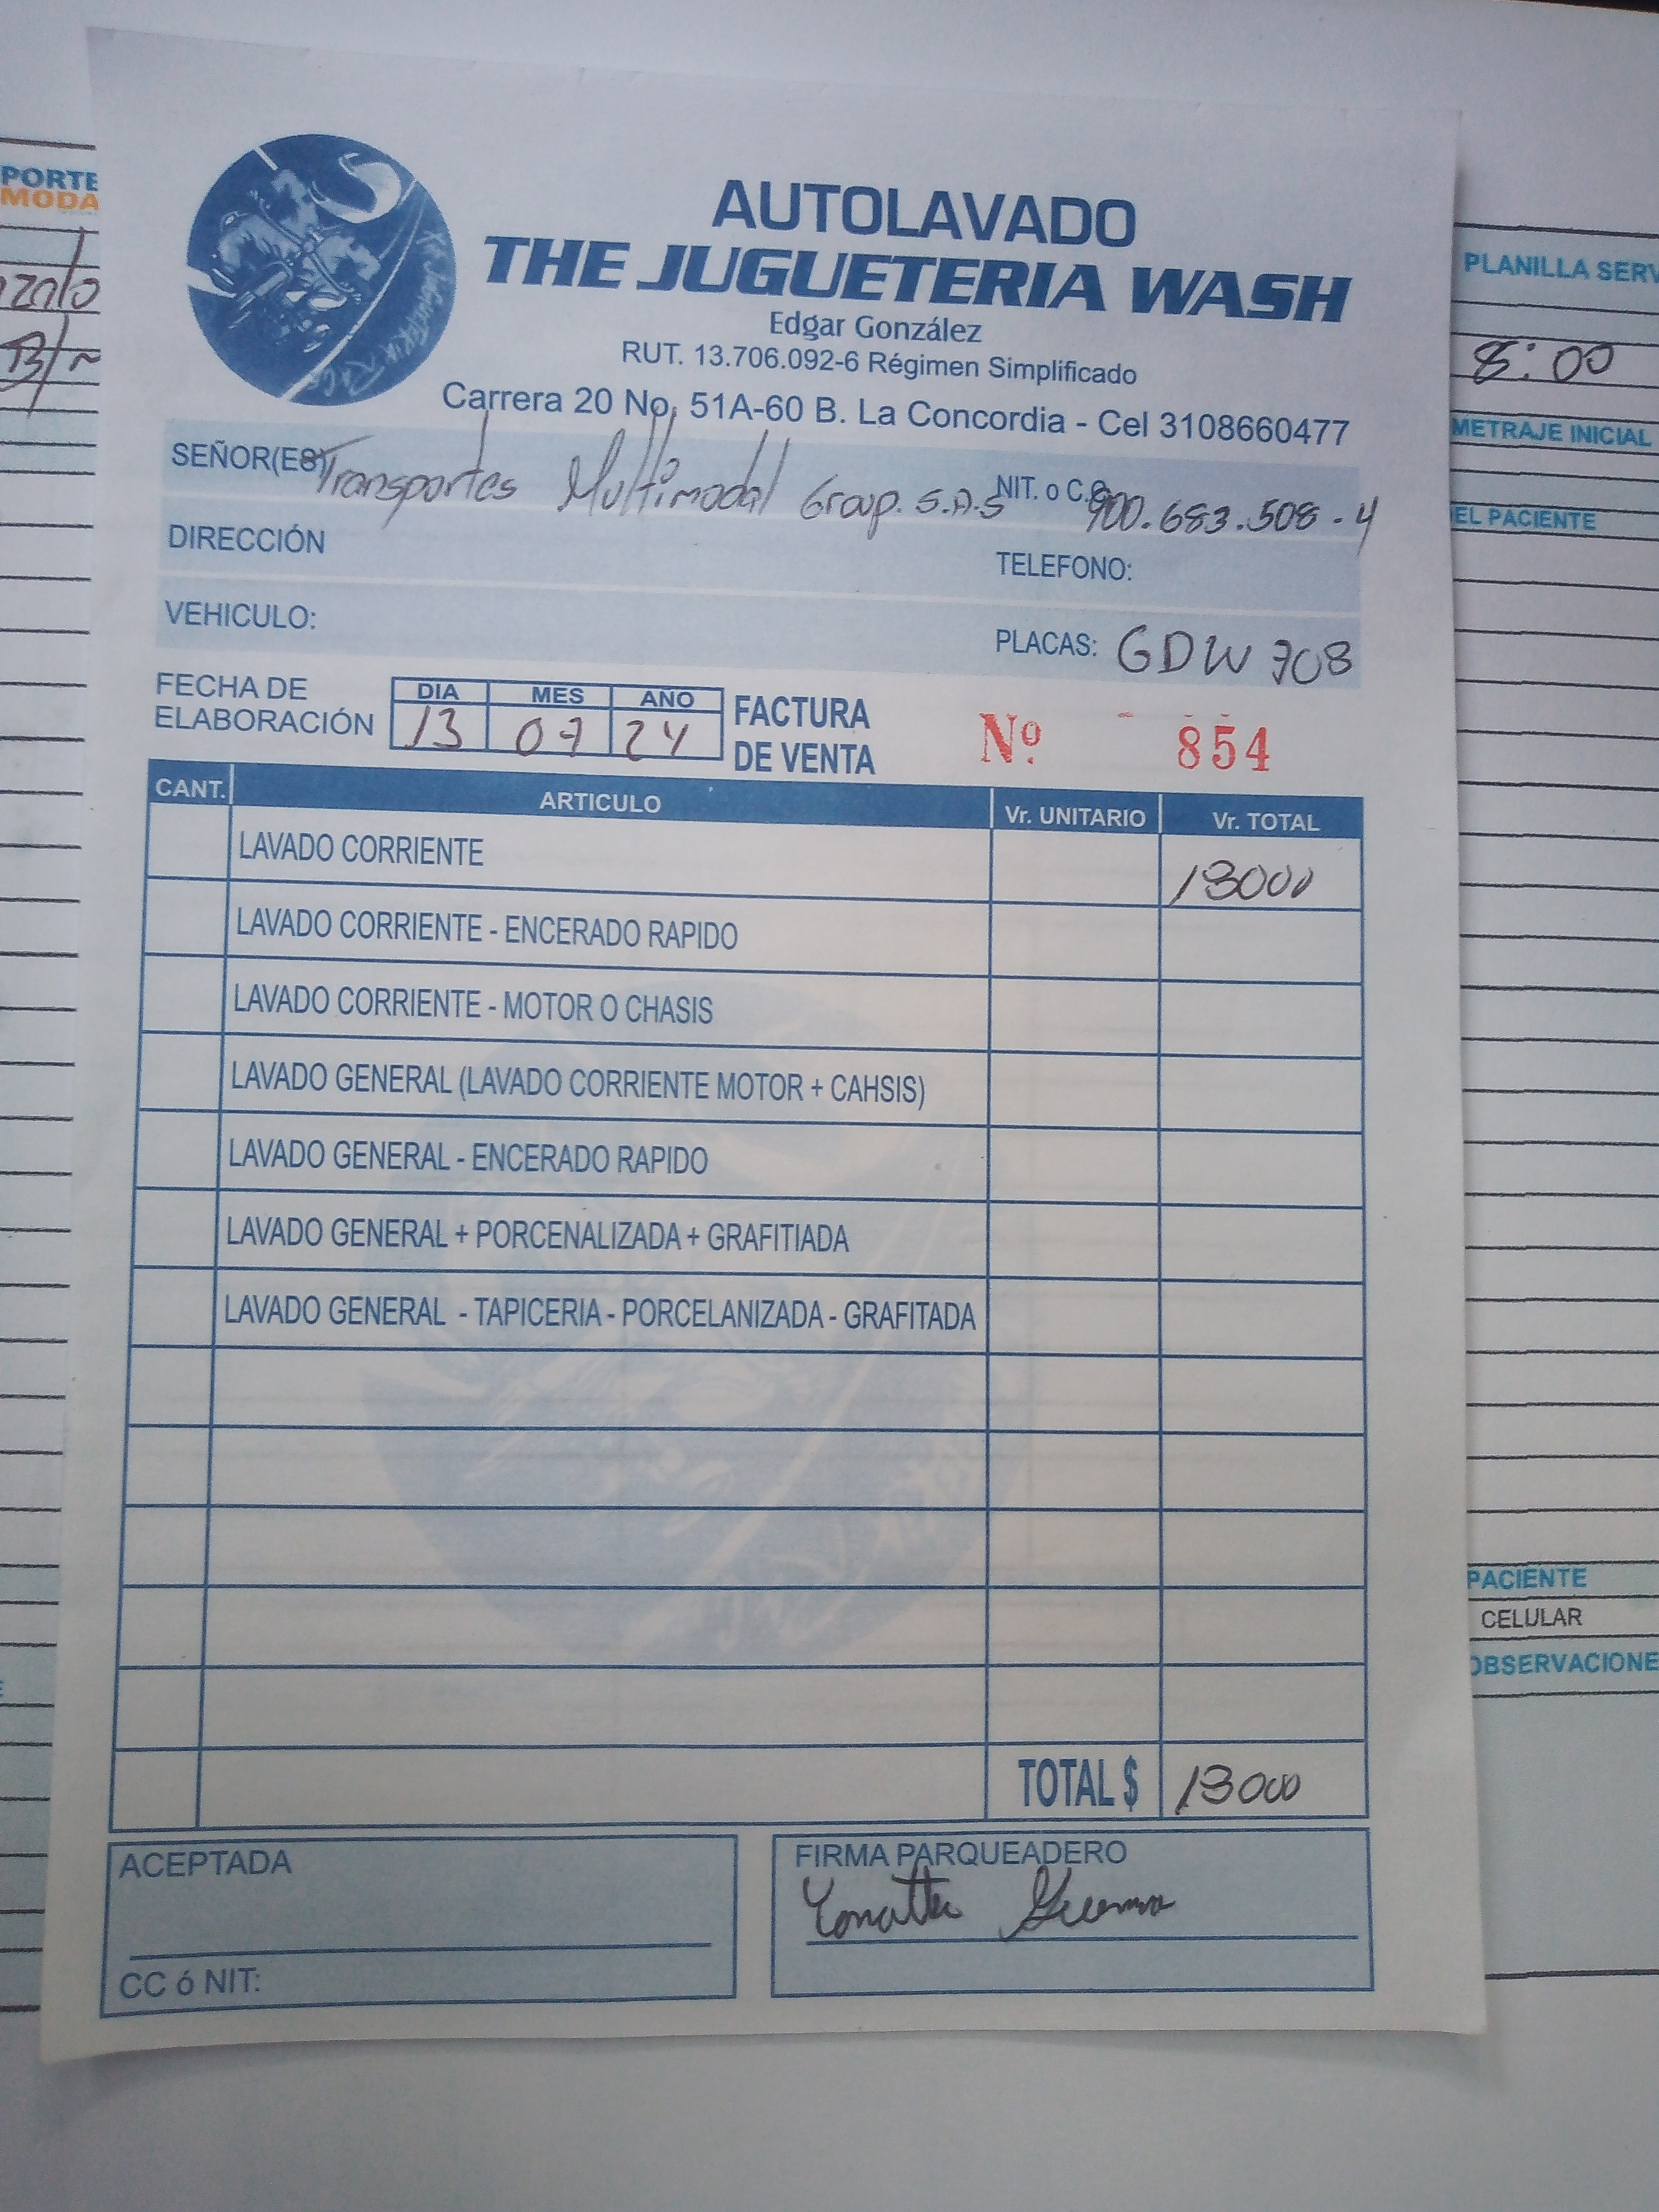 PORTE
MODA
AUTOLAVADO
THE JUGUETERIA WASH
Edgar González
RUT. 13.706.092-6 Régimen Simplificado
Carrera 20 No. 51A-60 B. La Concordia - Cel 3108660477
SEÑOR(ES) Transportes Multimodal Group. S.A.S NIT. o C.C. 900.683.508-4
DIRECCIÓN TELEFONO:
VEHICULO: PLACAS: GDW 708
FECHA DE ELABORACIÓN DIA MES AÑO
13 07 24
FACTURA DE VENTA Nº 854
CANT. ARTICULO Vr. UNITARIO Vr. TOTAL
LAVADO CORRIENTE 13000
LAVADO CORRIENTE - ENCERADO RAPIDO
LAVADO CORRIENTE - MOTOR O CHASIS
LAVADO GENERAL (LAVADO CORRIENTE MOTOR + CAHSIS)
LAVADO GENERAL - ENCERADO RAPIDO
LAVADO GENERAL + PORCENALIZADA + GRAFITIADA
LAVADO GENERAL - TAPICERIA - PORCELANIZADA - GRAFITADA
TOTAL $ 13000
ACEPTADA
CC ó NIT:
FIRMA PARQUEADERO
PLANILLA SERV
8:00
METRAJE INICIAL
EL PACIENTE
PACIENTE
CELULAR
OBSERVACIONE